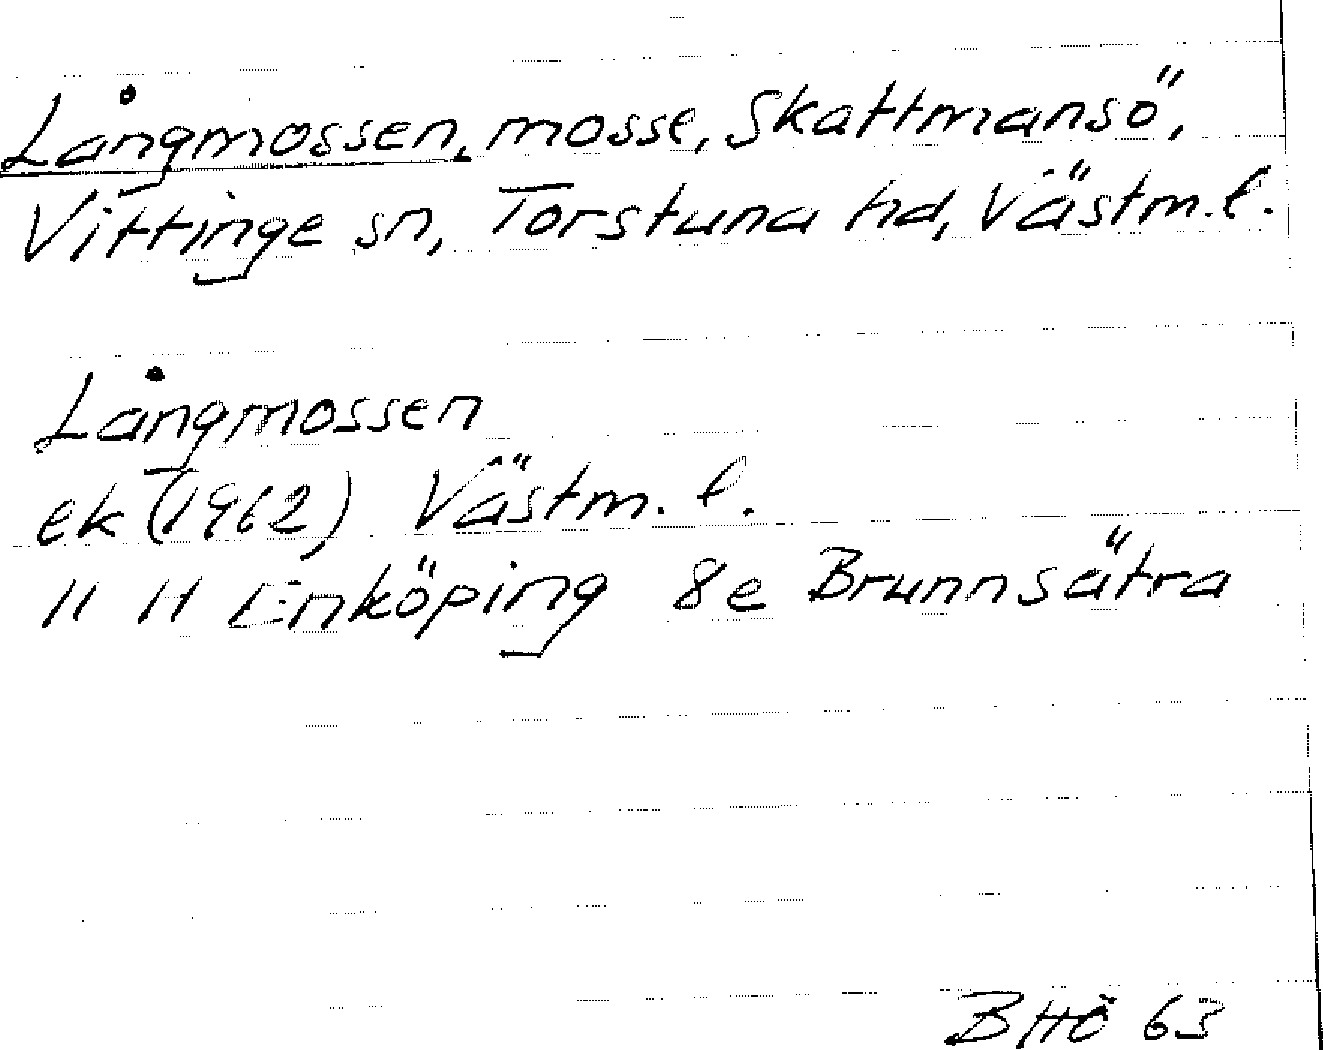 Långmossen, mosse, Skattmansö,
Vittinge sn, Torstuna hd, Västm. l.
Långmossen
ek (1962) Västm. l.
11 H Enköping 8e Brunnsätra
BHÖ 63